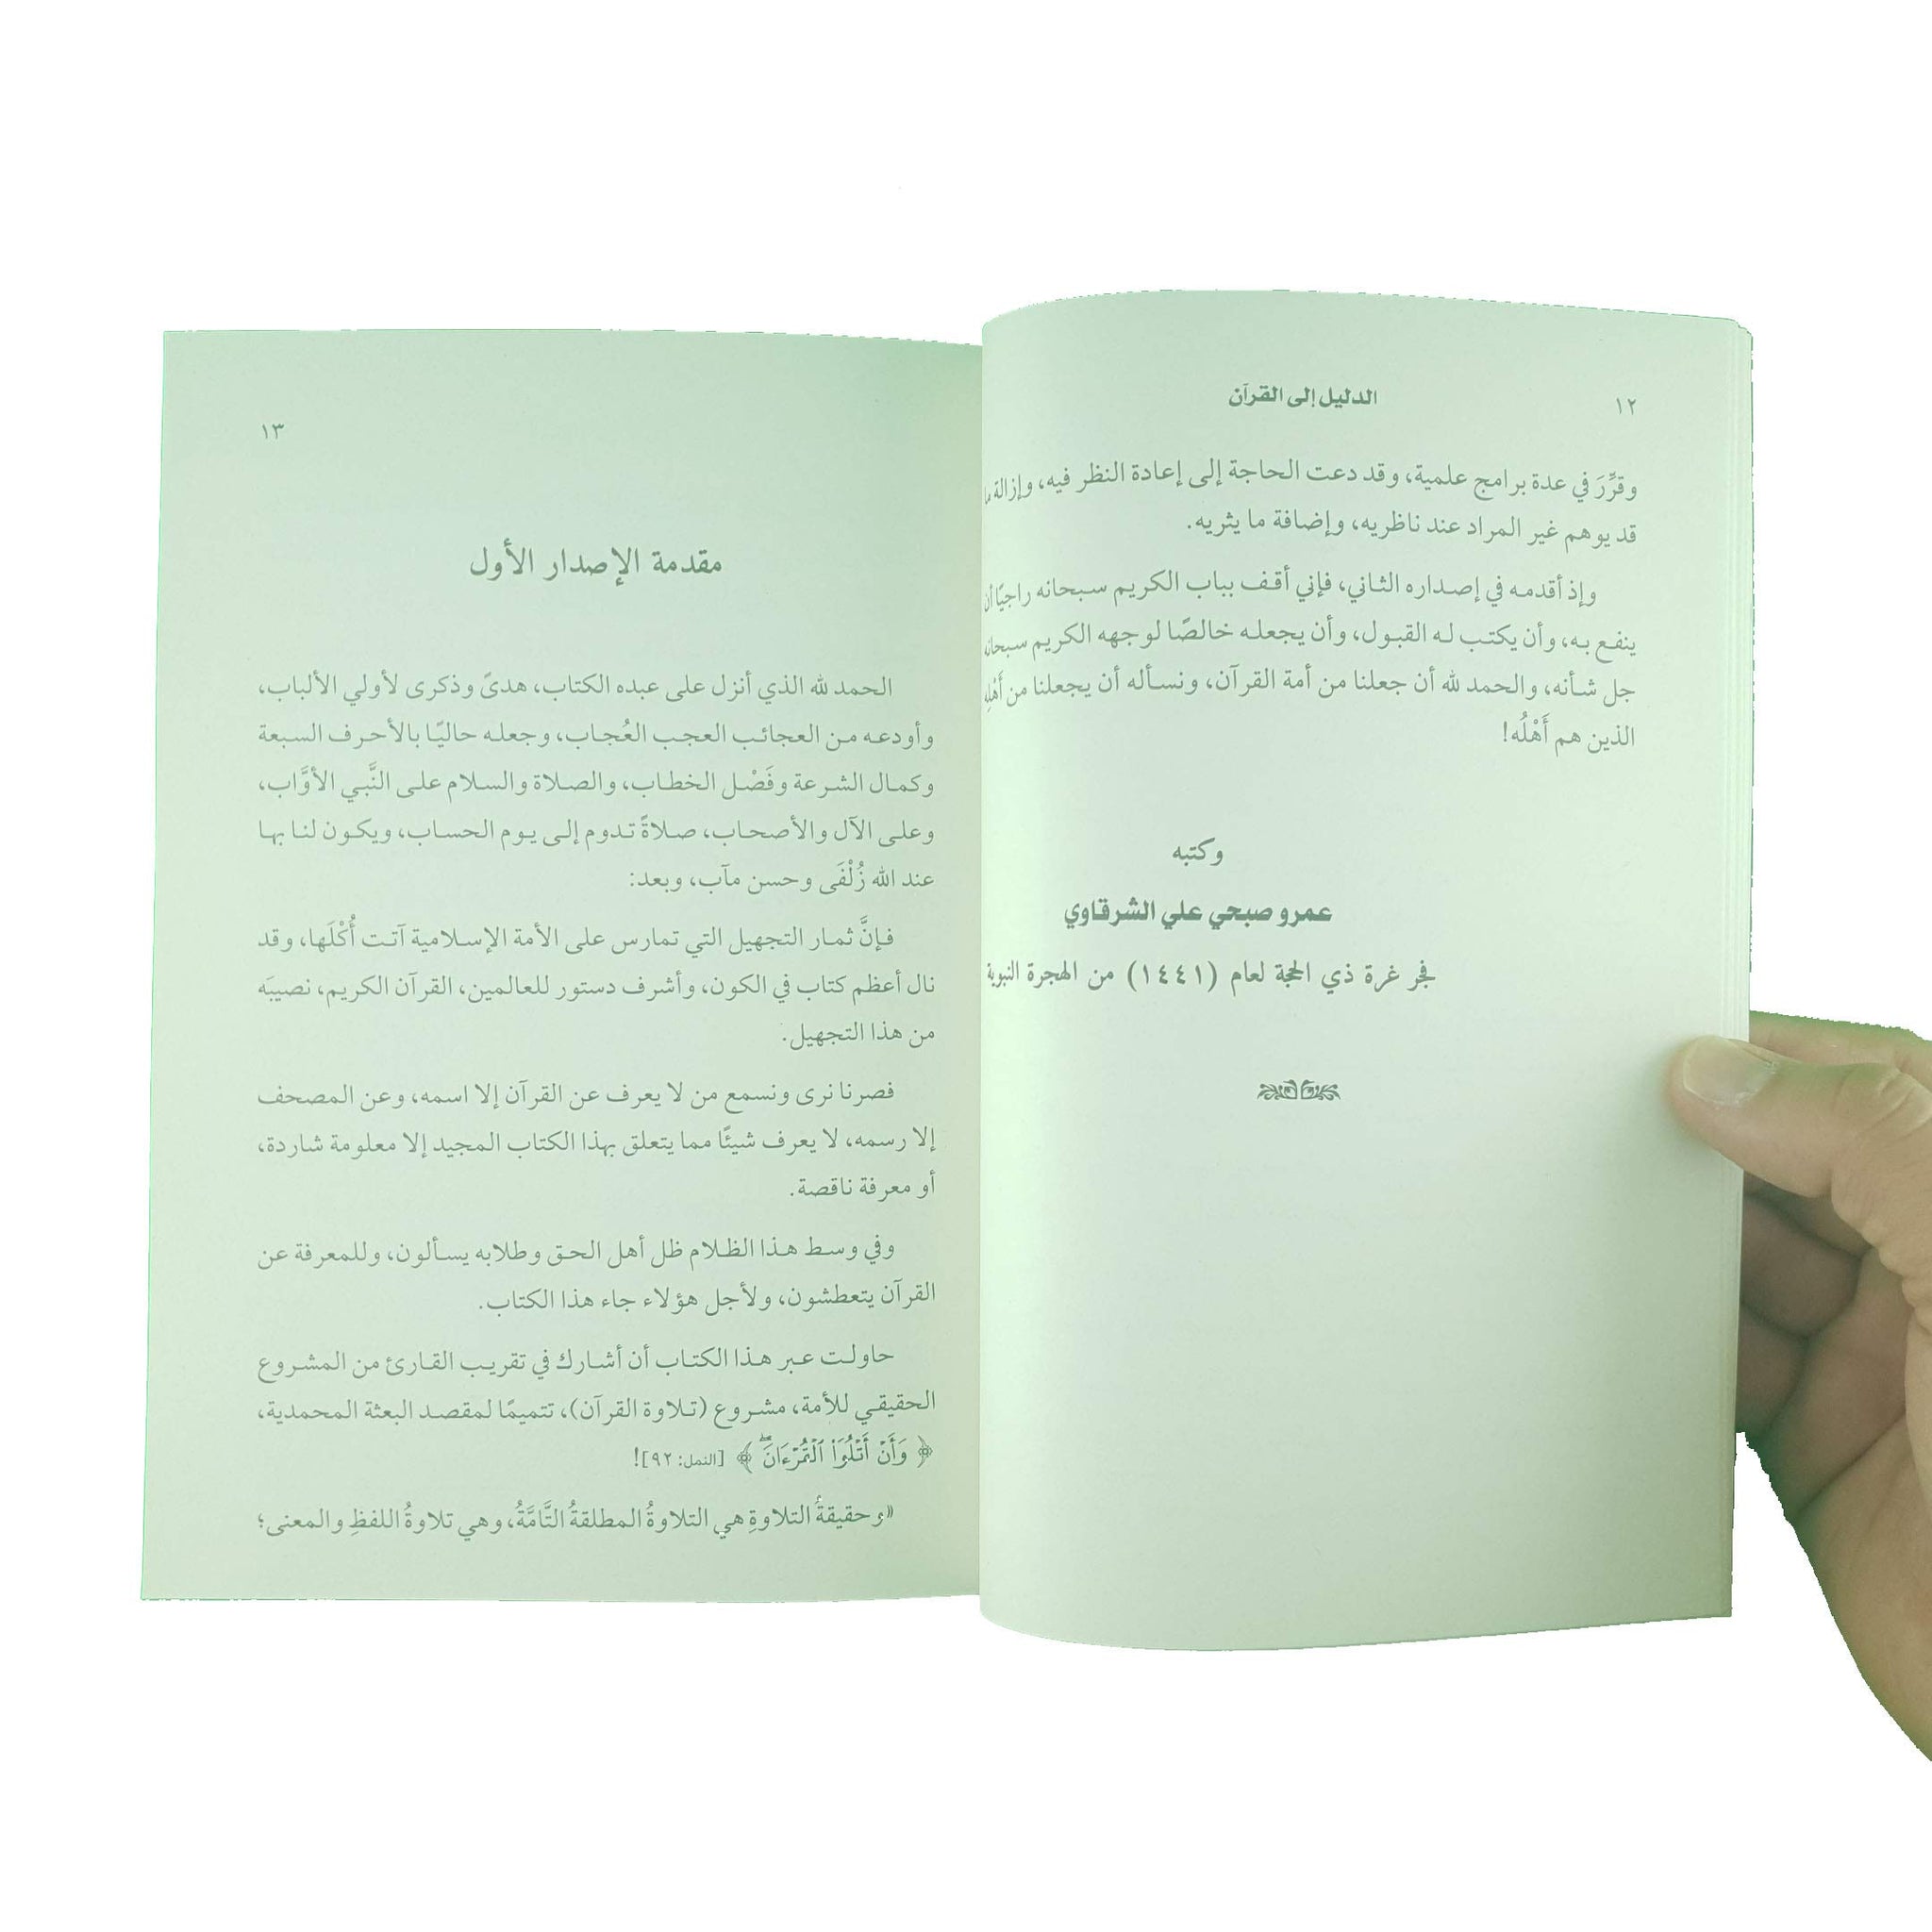 ١٢
الدليل إلى القرآن
وقُرِّرَ في عدة برامج علمية، وقد دعت الحاجة إلى إعادة النظر فيه، وإزالة ما
قد يوهم غير المراد عند ناظريه، وإضافة ما يثريه.
وإذ أقدمه في إصداره الثاني، فإني أقف بباب الكريم سبحانه راجيًا أن
ينفع به، وأن يكتب له القبول، وأن يجعله خالصًا لوجهه الكريم سبحانه
جل شأنه، والحمد لله أن جعلنا من أمة القرآن، ونسأله أن يجعلنا من أَهْلِهِ
الذين هم أَهْلُه!
وكتبه
عمرو صبحي علي الشرقاوي
فجر غرة ذي الحجة لعام (١٤٤١) من الهجرة النبوية
١٣
مقدمة الإصدار الأول
الحمد لله الذي أنزل على عبده الكتاب، هدىً وذكرى لأولي الألباب،
وأودعه من العجائب العجب العُجاب، وجعله حاليًا بالأحرف السبعة
وكمال الشرعة وفَصْل الخطاب، والصلاة والسلام على النَّبي الأوَّاب،
وعلى الآل والأصحاب، صلاةً تدوم إلى يوم الحساب، ويكون لنا بها
عند الله زُلْفَى وحسن مآب، وبعد:
فإنَّ ثمار التجهيل التي تمارس على الأمة الإسلامية آتت أُكْلَها، وقد
نال أعظم كتاب في الكون، وأشرف دستور للعالمين، القرآن الكريم، نصيبَه
من هذا التجهيل.
فصرنا نرى ونسمع من لا يعرف عن القرآن إلا اسمه، وعن المصحف
إلا رسمه، لا يعرف شيئًا مما يتعلق بهذا الكتاب المجيد إلا معلومة شاردة،
أو معرفة ناقصة.
وفي وسط هذا الظلام ظل أهل الحق وطلابه يسألون، وللمعرفة عن
القرآن يتعطشون، ولأجل هؤلاء جاء هذا الكتاب.
حاولت عبر هذا الكتاب أن أشارك في تقريب القارئ من المشروع
الحقيقي للأمة، مشروع (تلاوة القرآن)، تتميمًا لمقصد البعثة المحمدية،
﴿وَأَنْ أَتْلُوَاْ الْقُرْءَانَۖ﴾ [النمل: ٩٢]!
«وحقيقةُ التلاوةِ هي التلاوةُ المطلقةُ التَّامَّةُ، وهي تلاوةُ اللفظِ والمعنى؛